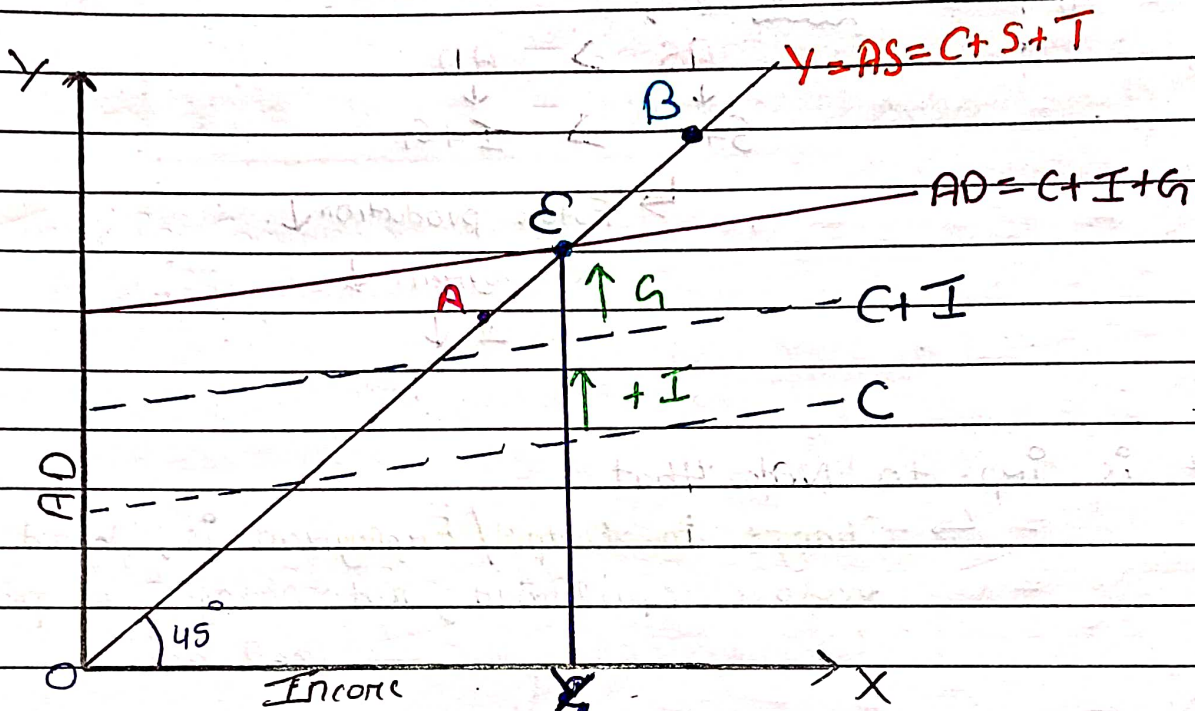 Y
Y = AS = C + S + T
B
AD = C + I + G
E
A
↑ G
C + I
↑ + I
C
AD
45°
O
Income
X